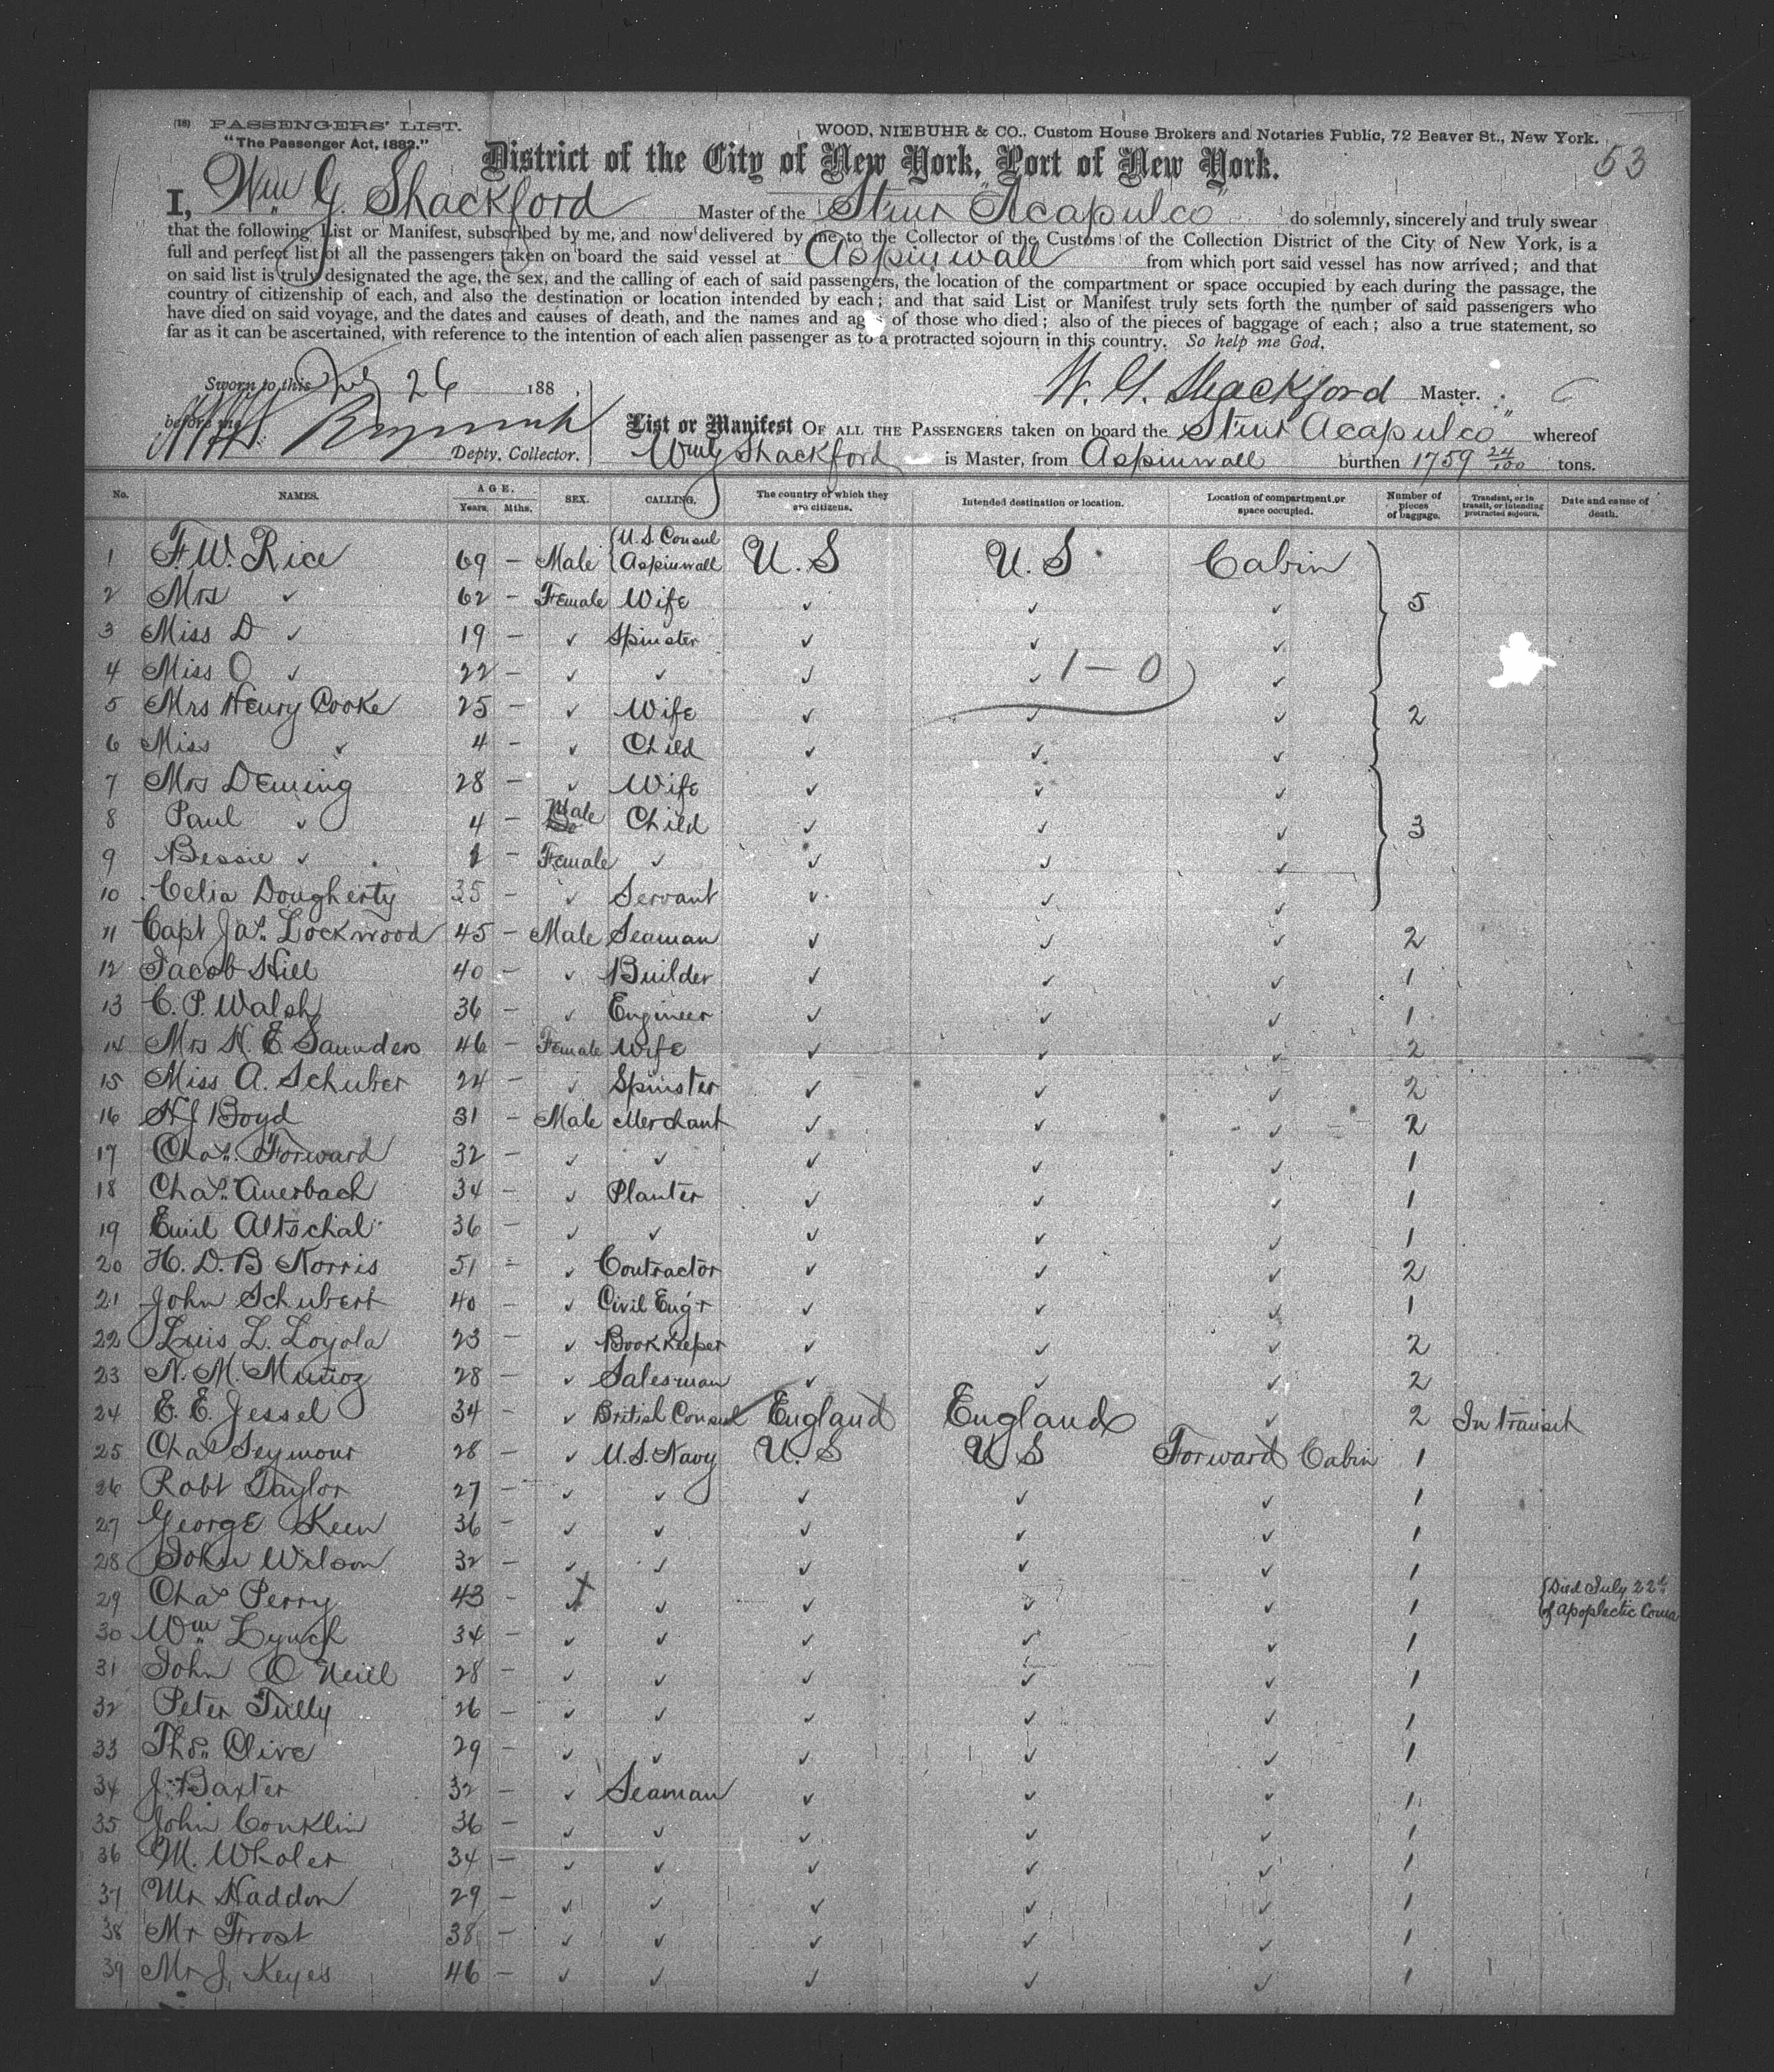 (18) PASSENGERS' LIST.
"The Passenger Act, 1882."
WOOD, NIEBUHR & CO., Custom House Brokers and Notaries Public, 72 Beaver St., New York.
53
District of the City of New York, Port of New York.
I, Wm G. Shackford Master of the Stmr "Acapulco" do solemnly, sincerely and truly swear
that the following List or Manifest, subscribed by me, and now delivered by me to the Collector of the Customs of the Collection District of the City of New York, is a
full and perfect list of all the passengers taken on board the said vessel at Aspinwall from which port said vessel has now arrived; and that
on said list is truly designated the age, the sex, and the calling of each of said passengers, the location of the compartment or space occupied by each during the passage, the
country of citizenship of each, and also the destination or location intended by each; and that said List or Manifest truly sets forth the number of said passengers who
have died on said voyage, and the dates and causes of death, and the names and ag s of those who died; also of the pieces of baggage of each; also a true statement, so
far as it can be ascertained, with reference to the intention of each alien passenger as to a protracted sojourn in this country. So help me God.
Sworn to this July 26 188
W. G. Shackford Master.
before me
Depty. Collector.
List or Manifest OF ALL THE PASSENGERS taken on board the Stmr Acapulco" whereof
Wm G Shackford is Master, from Aspinwall burthen 1759 24/100 tons.
No. NAMES. AGE. Years. Mths. SEX. CALLING. The country of which they are citizens. Intended destination or location. Location of compartment or space occupied. Number of pieces of baggage. Transient, or in transit, or intending protracted sojourn. Date and cause of death.
1 F. W. Rice 69 - Male {U.S. Consul Aspinwall U.S U.S Cabin
2 Mrs ✓ 62 - Female Wife ✓ ✓ ✓ 5
3 Miss D ✓ 19 - ✓ Spinster ✓ ✓ ✓
4 Miss O ✓ 22 - ✓ ✓ ✓ ✓ 1-0 ✓
5 Mrs Henry Cooke 25 - ✓ Wife ✓ ✓ ✓ 2
6 Miss ✓ 4 - ✓ Child ✓ ✓ ✓
7 Mrs Deming 28 - ✓ Wife ✓ ✓ ✓
8 Paul ✓ 4 - Male Child ✓ ✓ ✓ 3
9 Bessie ✓ - Female ✓ ✓ ✓ ✓
10 Celia Dougherty 35 - ✓ Servant ✓ ✓ ✓
11 Capt Jas. Lockwood 45 - Male Seaman ✓ ✓ ✓ 2
12 Jacob Hill 40 - ✓ Builder ✓ ✓ ✓ 1
13 C. P. Walsh 36 - ✓ Engineer ✓ ✓ ✓ 1
14 Mrs H. E. Saunders 46 - Female Wife ✓ ✓ ✓ 2
15 Miss A. Schuber 24 - ✓ Spinster ✓ ✓ ✓ 2
16 H J Boyd 31 - Male Merchant ✓ ✓ ✓ 2
17 Chas. Forward 32 - ✓ ✓ ✓ ✓ ✓ 1
18 Chas. Auerbach 34 - ✓ Planter ✓ ✓ ✓ 1
19 Emil Altschal 36 - ✓ ✓ ✓ ✓ ✓ 1
20 H. D. B Norris 51 - ✓ Contractor ✓ ✓ ✓ 2
21 John Schubert 40 - ✓ Civil Eng'r ✓ ✓ ✓ 1
22 Luis L. Loyola 23 - ✓ Bookkeeper ✓ ✓ ✓ 2
23 N. M. Muñoz 28 - ✓ Salesman ✓ ✓ ✓ 2
24 E. E. Jessel 34 - ✓ British Consul England England ✓ 2 In transit
25 Chas Seymour 28 - ✓ U.S. Navy U.S U S Forward Cabin 1
26 Robt Taylor 27 - ✓ ✓ ✓ ✓ ✓ 1
27 George Keen 36 - ✓ ✓ ✓ ✓ ✓ 1
28 John Wilson 32 - ✓ ✓ ✓ ✓ ✓ 1
29 Chas Perry 43 - ✓ ✓ ✓ ✓ ✓ 1 {Died July 22d of Apoplectic Coma
30 Wm Lynch 34 - ✓ ✓ ✓ ✓ ✓ 1
31 John O Neill 28 - ✓ ✓ ✓ ✓ ✓ 1
32 Peter Tully 26 - ✓ ✓ ✓ ✓ ✓ 1
33 Thos. Clive 29 - ✓ ✓ ✓ ✓ ✓ 1
34 J. Baxter 32 - ✓ Seaman ✓ ✓ ✓ 1
35 John Conklin 36 - ✓ ✓ ✓ ✓ ✓ 1
36 M. Whaler 34 - ✓ ✓ ✓ ✓ ✓ 1
37 Mr Haddon 29 - ✓ ✓ ✓ ✓ ✓ 1
38 Mr Frost 38 - ✓ ✓ ✓ ✓ ✓ 1
39 Mr J. Keyes 46 - ✓ ✓ ✓ ✓ ✓ 1